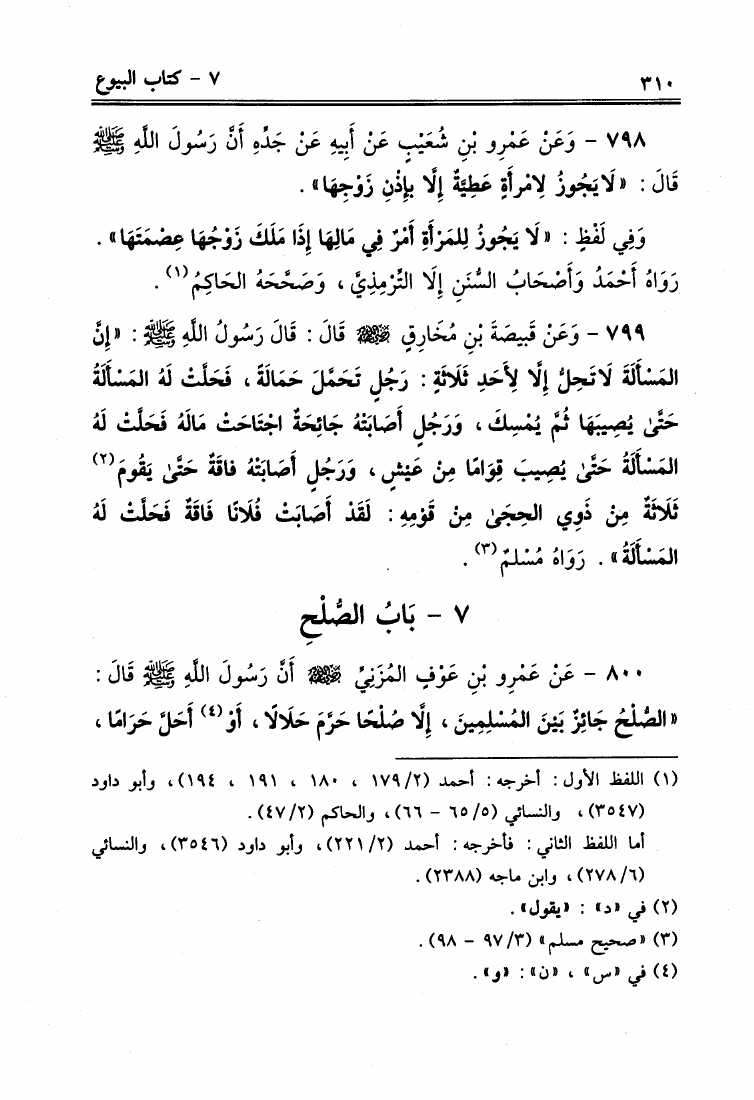 ٣١٠
٧ - كتاب البيوع
٧٩٨ - وَعَنْ عَمْرِو بْنِ شُعَيْبٍ عَنْ أَبِيهِ عَنْ جَدِّهِ أَنَّ رَسُولَ اللَّهِ ﷺ
قَالَ : «لَا يَجُوزُ لِامْرَأَةٍ عَطِيَّةٌ إِلَّا بِإِذْنِ زَوْجِهَا» .
وَفِي لَفْظٍ : «لَا يَجُوزُ لِلمَرْأَةِ أَمْرٌ فِي مَالِهَا إِذَا مَلَكَ زَوْجُهَا عِصْمَتَهَا» .
رَوَاهُ أَحْمَدُ وَأَصْحَابُ السُّنَنِ إِلَّا التِّرْمِذِيَّ ، وَصَحَّحَهُ الحَاكِمُ(١) .
٧٩٩ - وَعَنْ قَبِيصَةَ بْنِ مُخَارِقٍ ﷺ قَالَ : قَالَ رَسُولُ اللَّهِ ﷺ : «إِنَّ
المَسْأَلَةَ لَا تَحِلُّ إِلَّا لِأَحَدِ ثَلَاثَةٍ : رَجُلٍ تَحَمَّلَ حَمَالَةً ، فَحَلَّتْ لَهُ المَسْأَلَةُ
حَتَّىٰ يُصِيبَهَا ثُمَّ يُمْسِكَ ، وَرَجُلٍ أَصَابَتْهُ جَائِحَةٌ اجْتَاحَتْ مَالَهُ فَحَلَّتْ لَهُ
المَسْأَلَةُ حَتَّىٰ يُصِيبَ قِوَامًا مِنْ عَيْشٍ ، وَرَجُلٍ أَصَابَتْهُ فاقَةٌ حَتَّىٰ يَقُومَ(٢)
ثَلَاثَةٌ مِنْ ذَوِي الحِجَىٰ مِنْ قَوْمِهِ : لَقَدْ أَصَابَتْ فُلَانًا فَاقَةٌ فَحَلَّتْ لَهُ
المَسْأَلَةُ» . رَوَاهُ مُسْلمٌ(٣) .
٧ - بَابُ الصُّلْحِ
٨٠٠ - عَنْ عَمْرِو بْنِ عَوْفٍ المُزَنِيِّ أَنَّ رَسُولَ اللَّهِ ﷺ قَالَ :
«الصُّلْحُ جَائِزٌ بَيْنَ المُسْلِمِينَ ، إِلَّا صُلْحًا حَرَّمَ حَلَالًا ، أَوْ(٤) أَحَلَّ حَرَامًا ،
(١) اللفظ الأول : أخرجه : أحمد (٢/ ١٧٩ ، ١٨٠ ، ١٩١ ، ١٩٤) ، وأبو داود
(٣٥٤٧) ، والنسائي (٥/ ٦٥ - ٦٦) ، والحاكم (٢/ ٤٧) .
أما اللفظ الثاني : فأخرجه : أحمد (٢/ ٢٢١) ، وأبو داود (٣٥٤٦) ، والنسائي
(٦/ ٢٧٨) ، وابن ماجه (٢٣٨٨) .
(٢) في «د» : «يقول» .
(٣) «صحيح مسلم» (٣/ ٩٧ - ٩٨) .
(٤) في «س» ، «ن» : «و» .